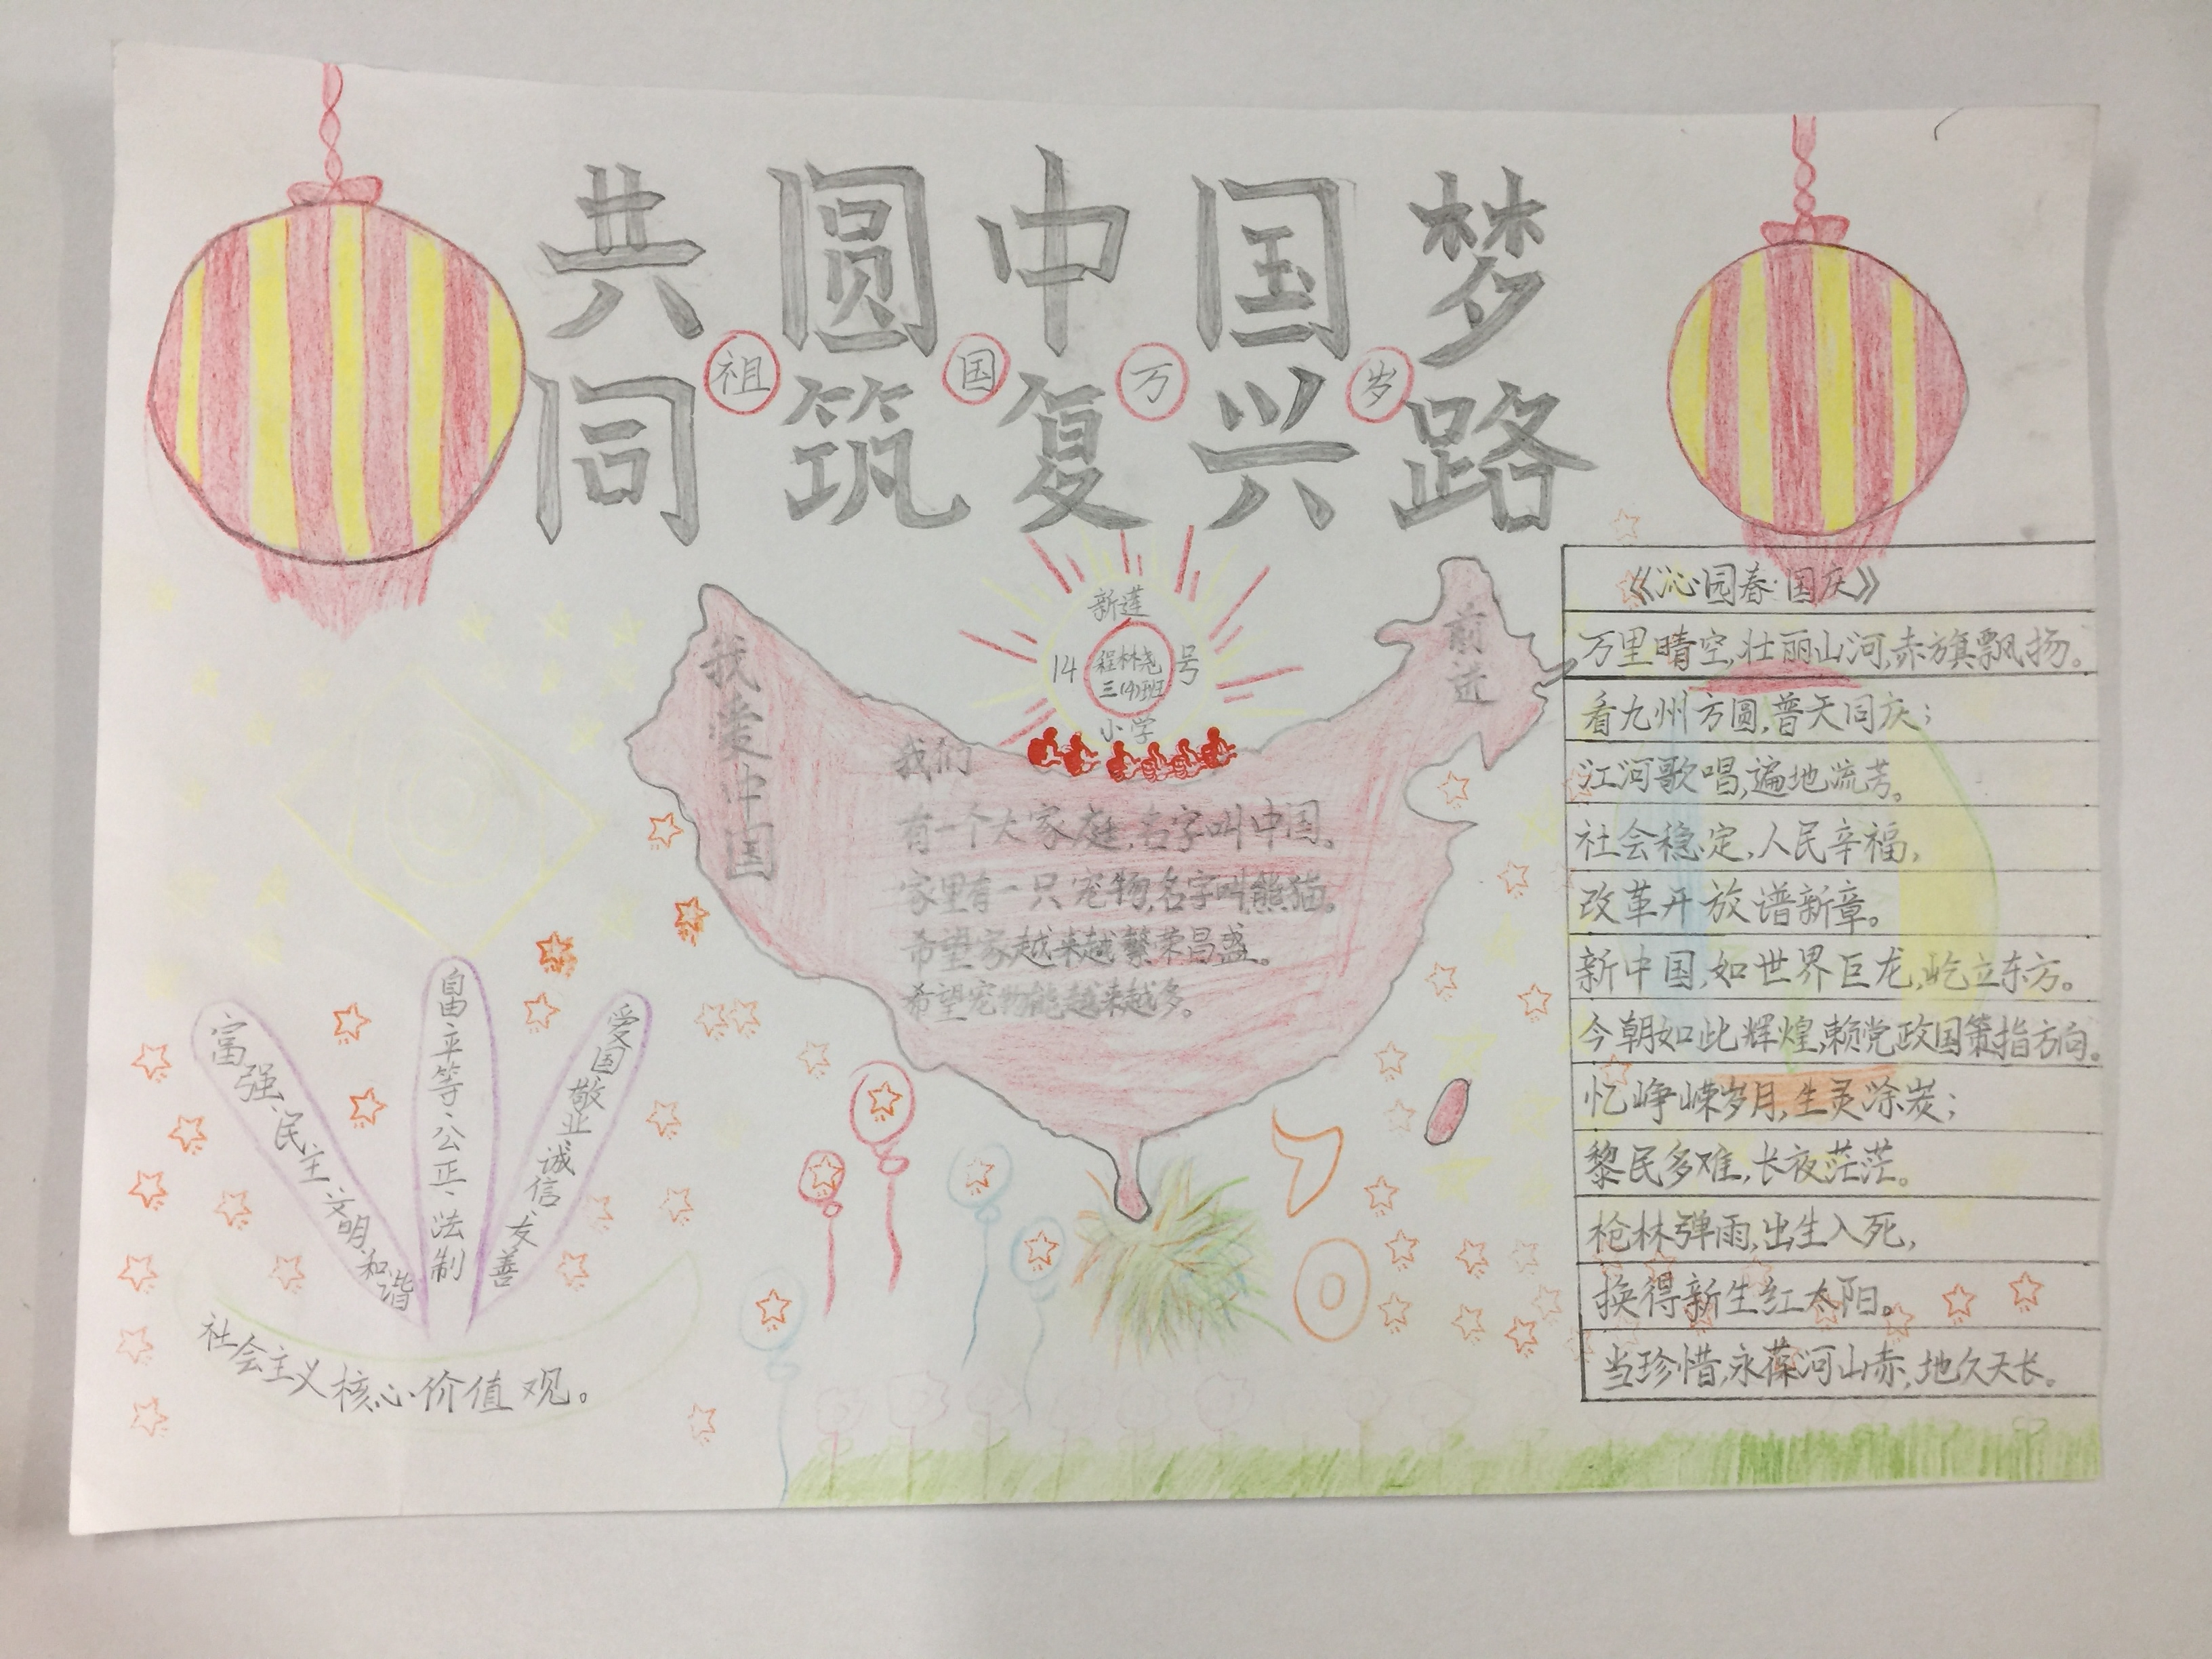 共圆中国梦
祖国万岁
同筑复兴路
新莲
14 程林尧 号
三(4)班
小学
我爱中国
前进
我们
有一个大家庭,名字叫中国。
家里有一只宠物,名字叫熊猫。
希望家越来越繁荣昌盛。
希望宠物能越来越多。
富强、民主、文明、和谐
自由、平等、公正、法制
爱国、敬业、诚信、友善
社会主义核心价值观。
《沁园春·国庆》
万里晴空,壮丽山河,赤旗飘扬。
看九州方圆,普天同庆;
江河歌唱,遍地流芳。
社会稳定,人民辛福,
改革开放谱新章。
新中国,如世界巨龙,屹立东方。
今朝如此辉煌,赖党政国策指方向。
忆峥嵘岁月,生灵涂炭;
黎民多难,长夜茫茫。
枪林弹雨,出生入死,
换得新生红太阳。
当珍惜,永葆河山赤,地久天长。